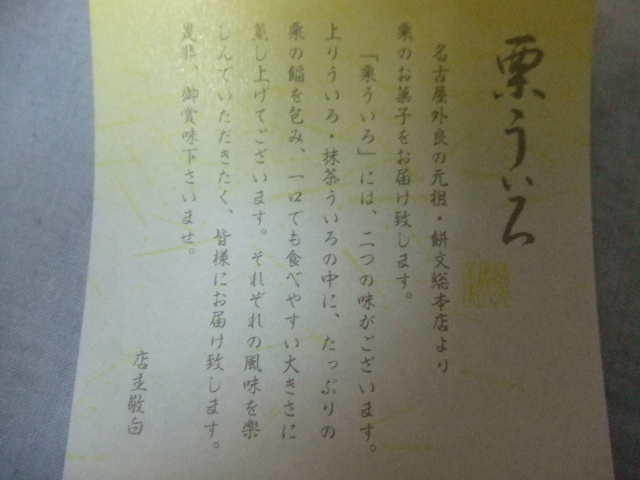 栗ういろ
名古屋外良の元祖・餅文総本店より
栗のお菓子をお届け致します。
「栗ういろ」には、二つの味がございます。
上りういろ・抹茶ういろの中に、たっぷりの
栗の餡を包み、一口でも食べやすい大きさに
蒸し上げてございます。それぞれの風味を楽
しんでいただきたく、皆様にお届け致します。
是非、御賞味下さいませ。
店主敬白